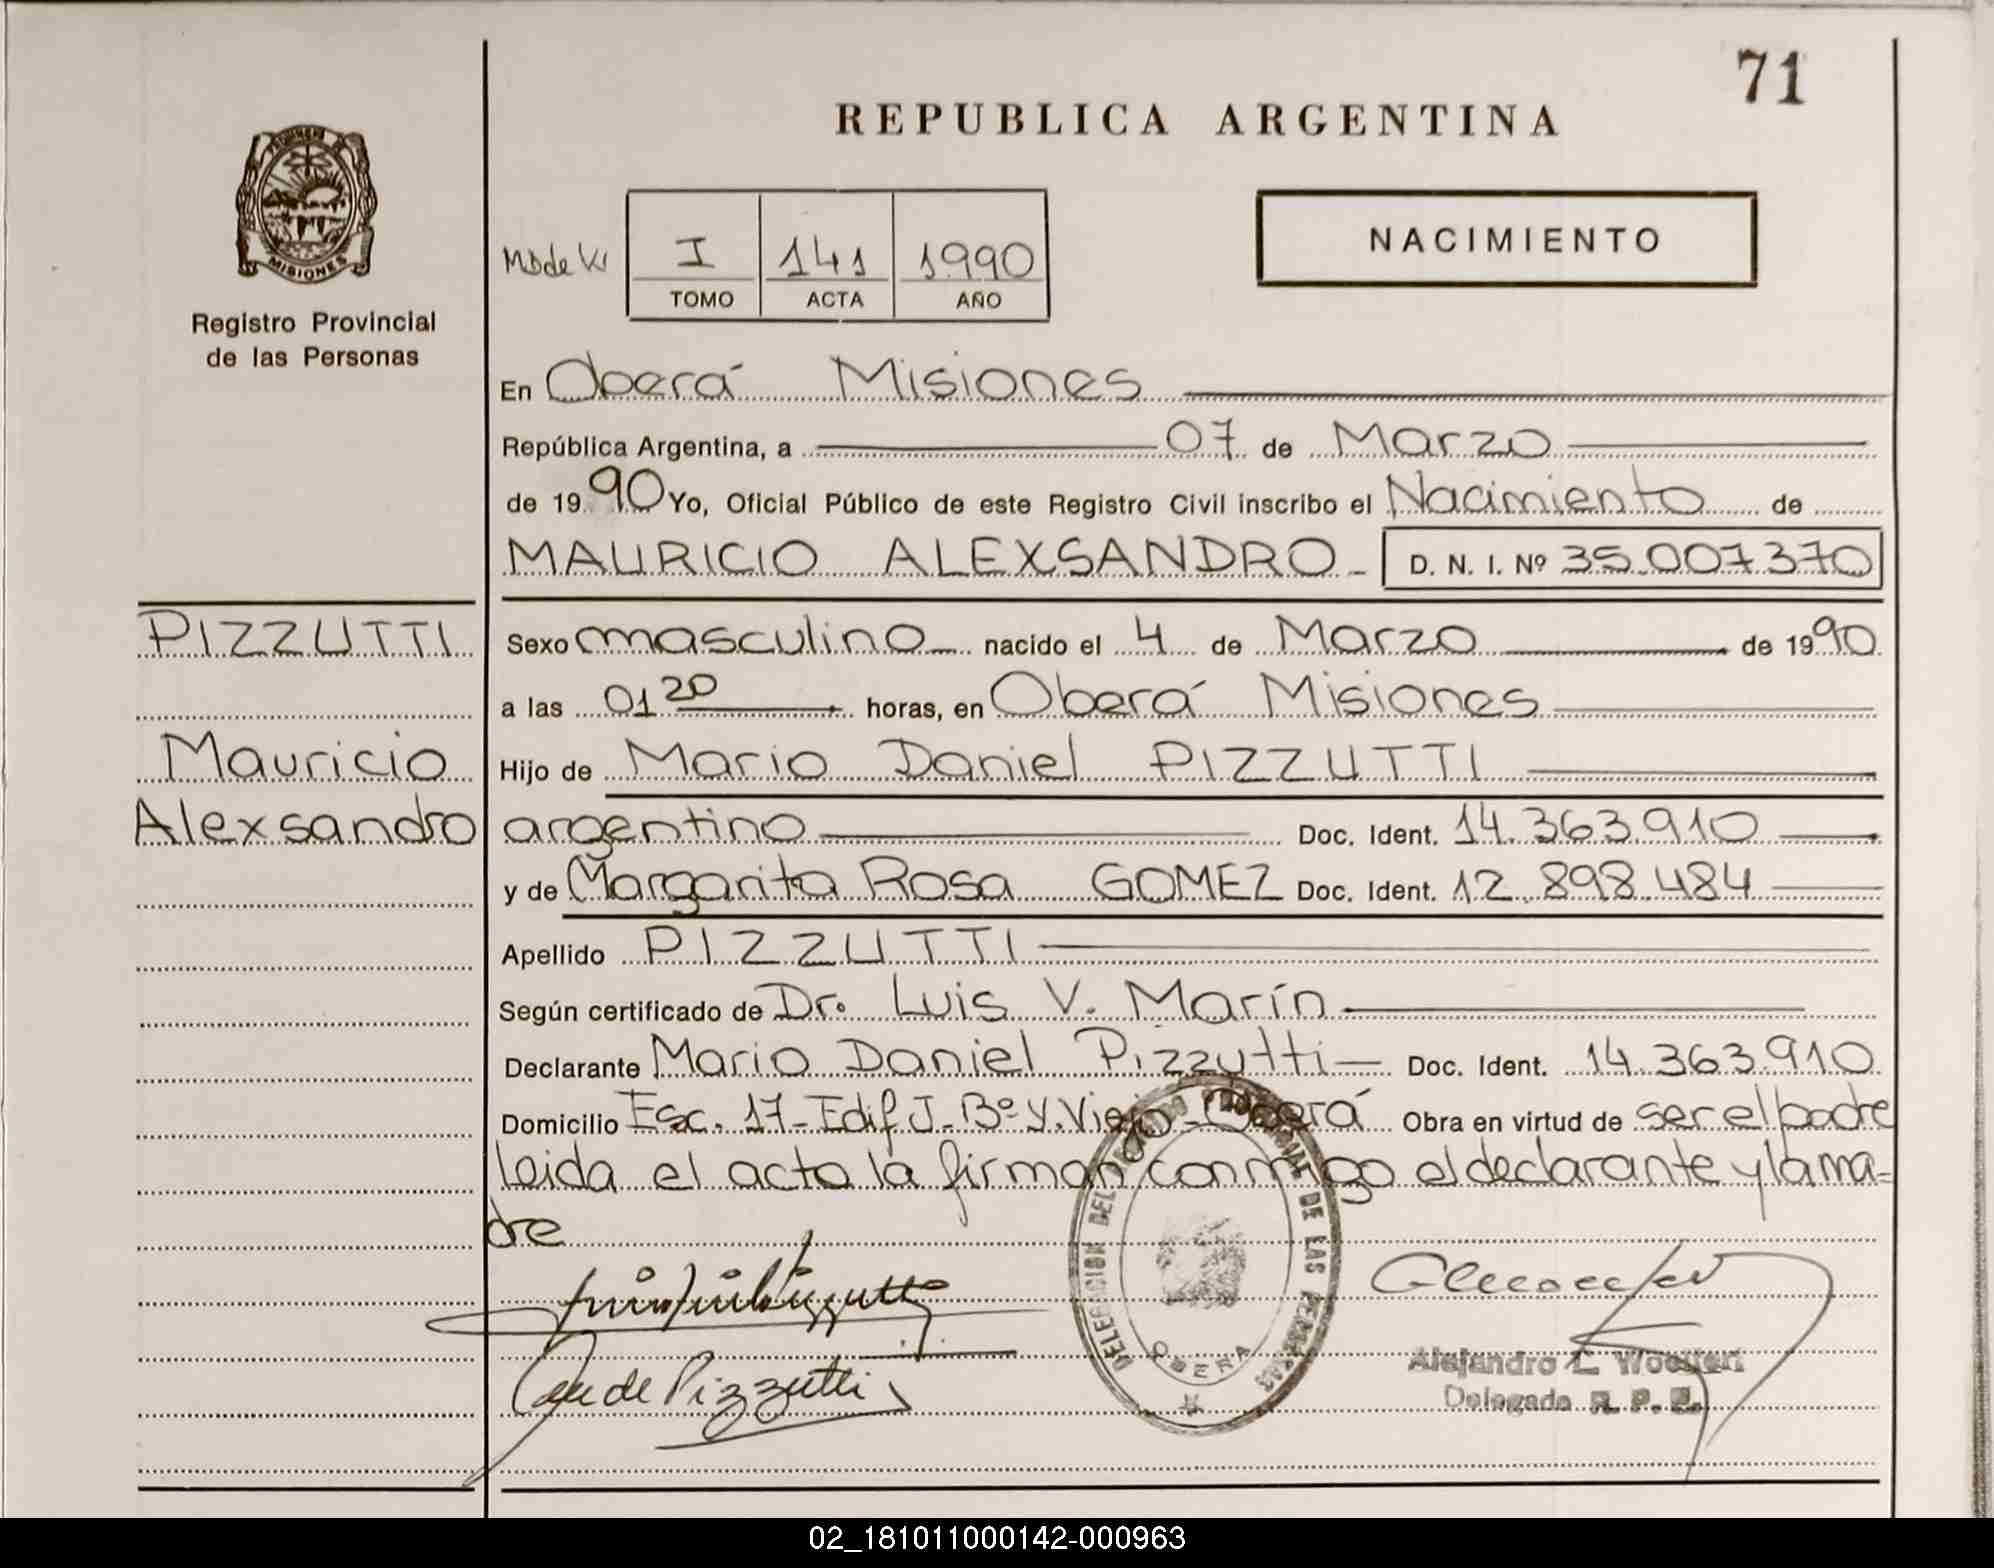 71
REPUBLICA ARGENTINA
MISIONES
Registro Provincial
de las Personas
I 141 1990
TOMO ACTA AÑO
NACIMIENTO
En Oberá Misiones
República Argentina, a 07 de Marzo
de 1990 Yo, Oficial Público de este Registro Civil inscribo el Nacimiento de
MAURICIO ALEXSANDRO D. N. I. Nº 35.007.370
PIZZUTTI
Mauricio
Alexsandro
Sexo masculino nacido el 4 de Marzo de 1990
a las 01 20 horas, en Oberá Misiones
Hijo de Mario Daniel PIZZUTTI
argentino Doc. Ident. 14.363.910
y de Margarita Rosa GOMEZ Doc. Ident. 12.898.484
Apellido PIZZUTTI
Según certificado de Dr. Luis V. Marín
Declarante Mario Daniel Pizzutti Doc. Ident. 14.363.910
Domicilio Esc. 17-Edif J-Bº Y. Viejo-Oberá Obra en virtud de ser el padre
leida el acta la firman conmigo el declarante y la ma=
dre
DELEGACION DEL REGISTRO PROVINCIAL DE LAS PERSONAS
OBERA
de Pizzutti
Alejandro L.
Delegado R. P. P.
02_181011000142-000963